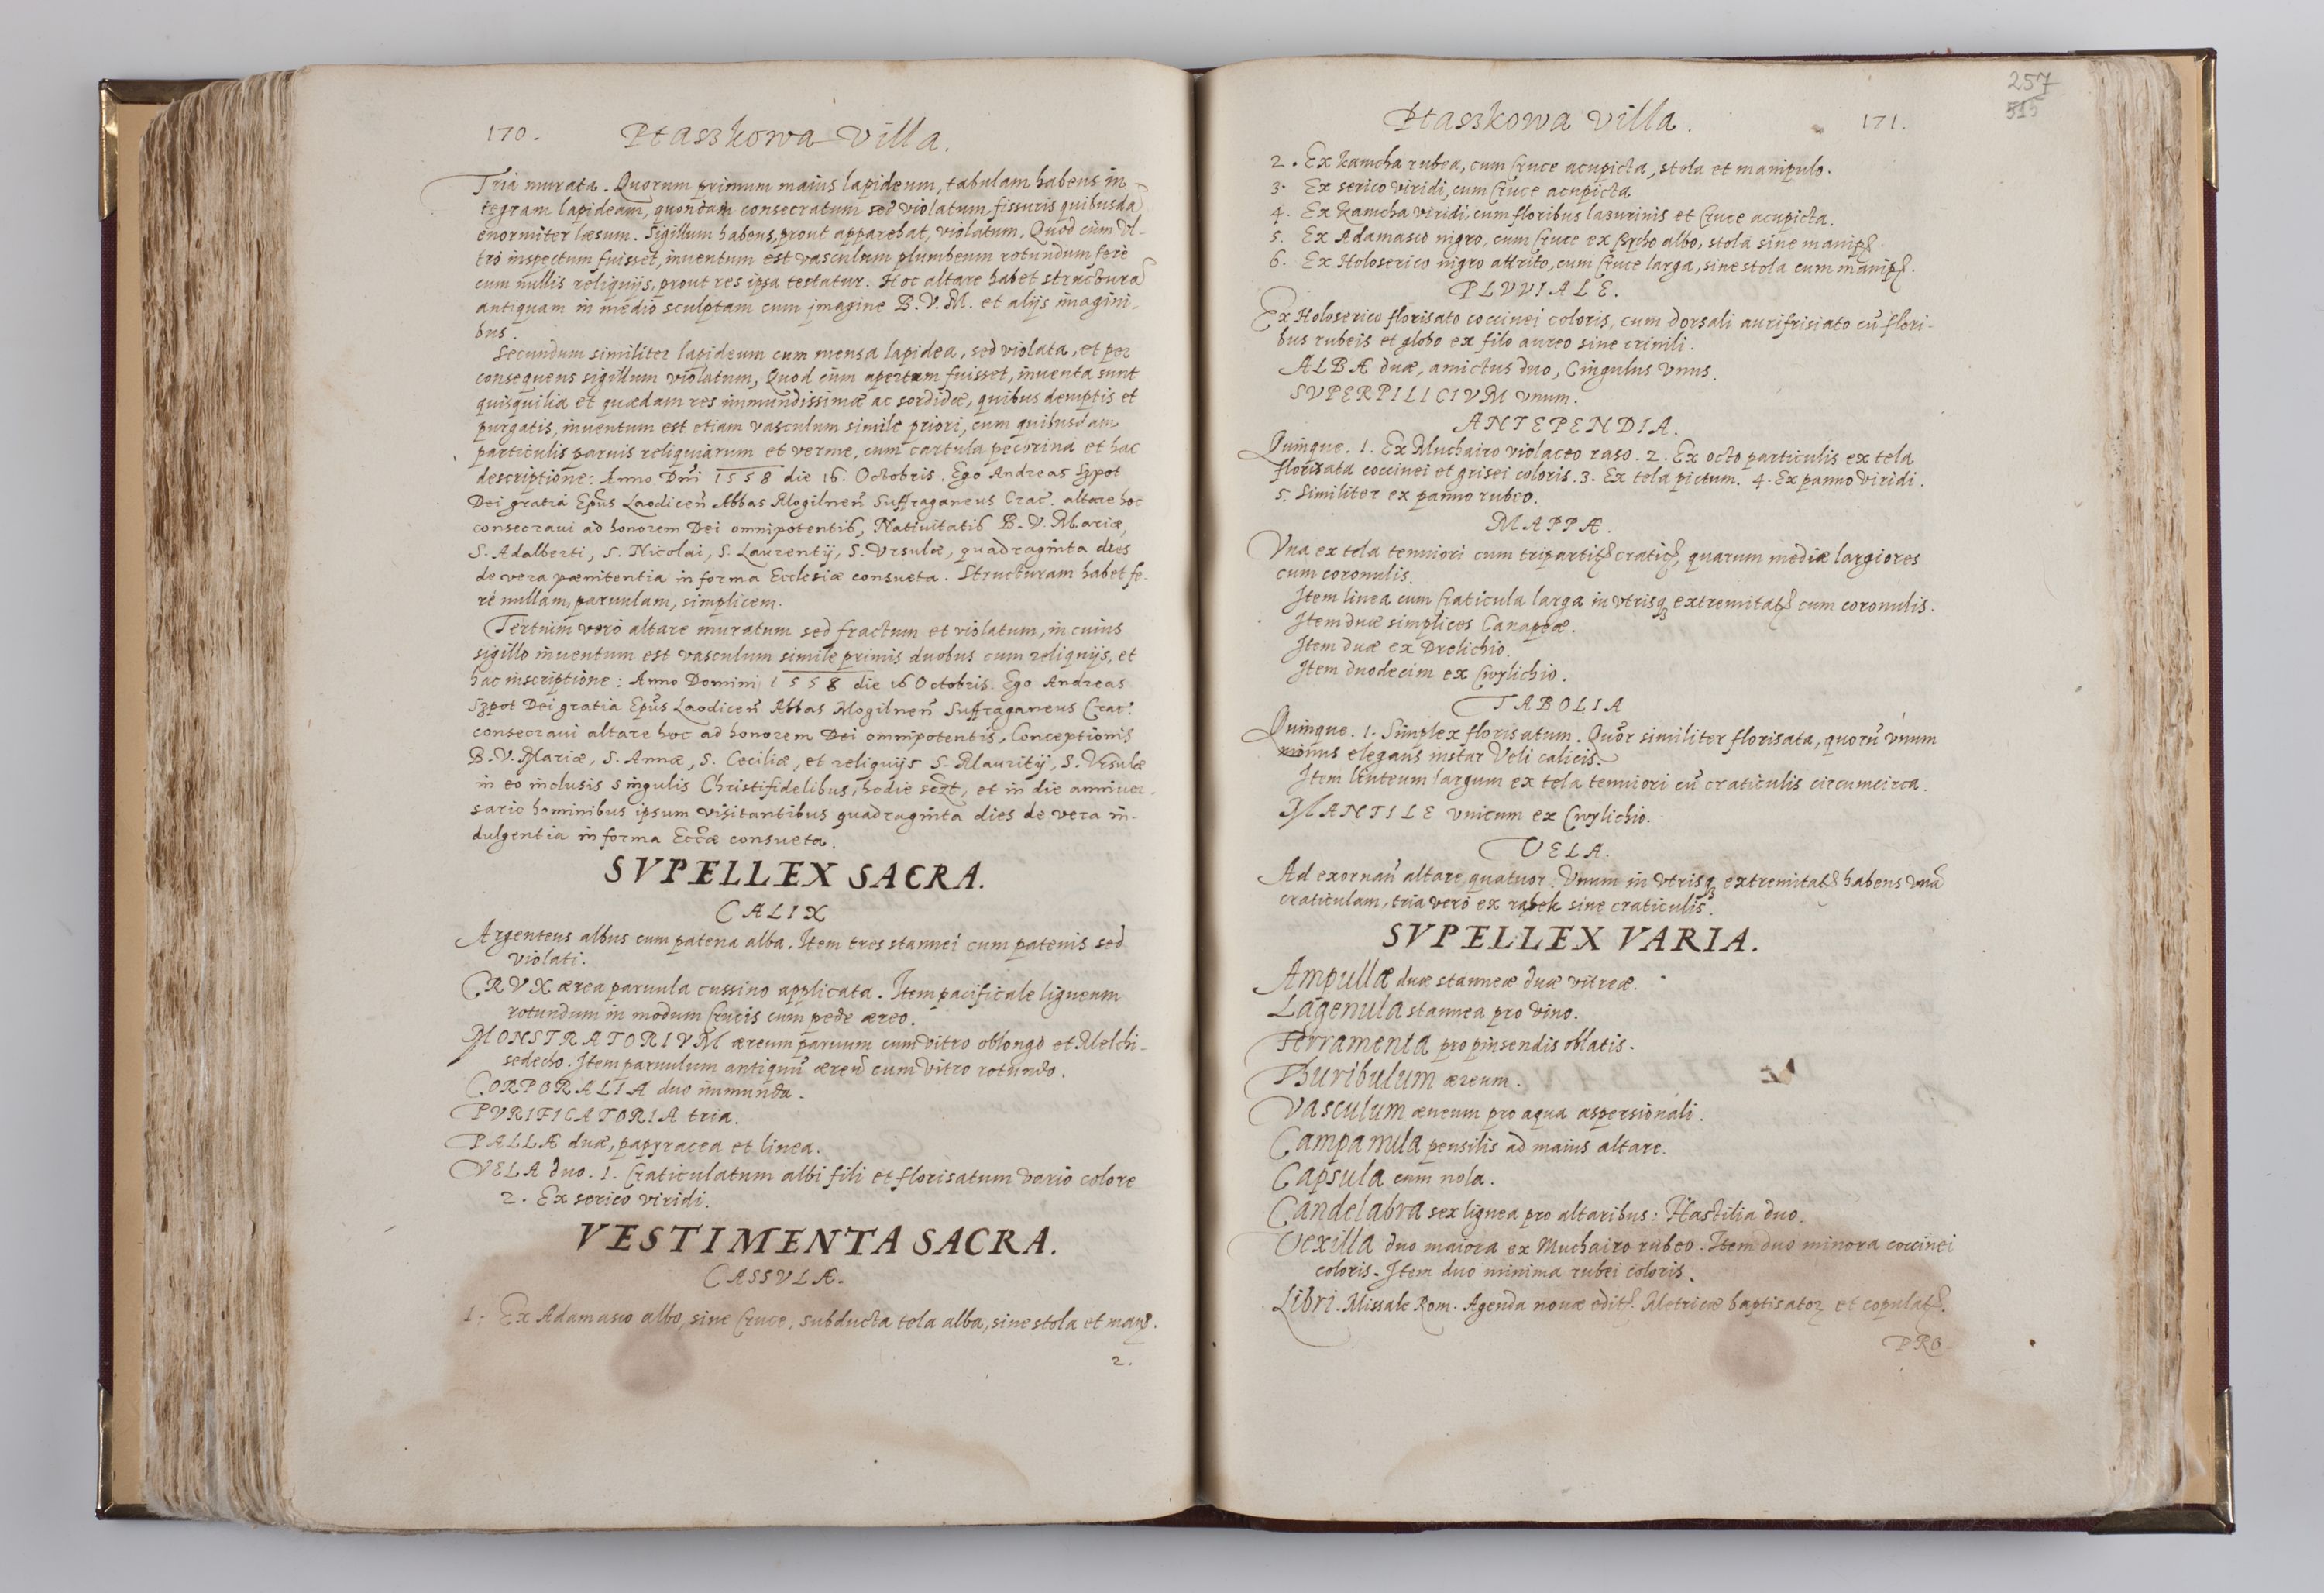 170. Ptaszkowa Villa.
Tria murata. Quorum primum maius lapideum, tabulam habens in
tegram lapideam, quondam consecratum sed violatum, fissuris quibusdã
enormiter læsum. Sigillum habens, prout apparebat, violatum. Quod cùm Vl-
trò inspectum fuisset, inuentum est vasculum plumbeum rotundum ferè
cum nullis reliquijs, prout res ipsa testatur. Hoc altare habet structurã
antiquam in medio sculptam cum jmagine B. V. M. et alijs imagini-
bus.
Secundum similiter lapideum cum mensa lapidea, sed violata, et per
consequens sigillum violatum, Quod cùm apertum fuisset, inuenta sunt
quisquilia et quædam res immundissimæ ac sordidæ, quibus demptis et
purgatis, inuentum est etiam vasculum simile priori, cum quibusdam
particulis paruis reliquiarum et verme, cum cartula pecorina et hac
descriptione: Anno Dñi 1558 die 16. Octobris. Ego Andreas Szpot
Dei gratia Epũs Laodiceñ Abbas Mogilneñ Suffraganeus Crac. altare hoc
consecraui ad honorem Dei omnipotentis, Natiuitatis B. V. Mariæ,
S. Adalberti, S. Nicolai, S. Laurentij, S. Vrsulæ, quadraginta dies
de vera pænitentia in forma Ecclesiæ consueta. Structuram habet fe-
rè nullam, paruulam, simplicem.
Tertium verò altare muratum sed fractum et violatum, in cuius
sigillo inuentum est vasculum simile primis duobus cum reliquijs, et
hac inscriptione: Anno Domini 1558 die 16 Octobris. Ego Andreas
Szpot Dei gratia Epũs Laodiceñ Abbas Mogilneñ Suffraganeus Crac.
consecraui altare hoc ad honorem Dei omnipotentis, Conceptionis
B. V. Mariæ, S. Annæ, S. Ceciliæ, et reliquijs S. Mauritij, S. Vrsulæ
in eo inclusis singulis Christifidelibus, hodie et in die anniuer-
sario hominibus ipsum visitantibus quadraginta dies de vera in-
dulgentia in forma Eccæ consueta.
SVPELLEX SACRA.
CALIX
Argenteus albus cum patena alba. Item tres stannei cum patenis sed
violati.
CRVX ærea paruula cussino applicata. Item pacificale ligneum
rotundum in modum Crucis cum pede æreo.
MONSTRATORIVM æreum paruum cum vitro oblongo et Melchi-
sedecho. Item paruulum antiquũ æreũ cum vitro rotundo.
CORPORALIA duo immunda.
PVRIFICATORIA tria.
PALLÆ duæ, papyracea et linea.
VELA duo. 1. Craticulatum albi fili et florisatum vario colore
2. Ex serico viridi.
VESTIMENTA SACRA.
CASSVLÆ.
1. Ex Adamasco albo, sine Cruce, subducta tela alba, sine stola et manip.
2.
257
515
Ptaszkowa Villa. 171.
2. Ex Kamcha rubea, cum Cruce acupicta, stola et manipulo.
3. Ex serico viridi, cum Cruce acupicta
4. Ex Kamcha viridi, cum floribus lasurinis et Cruce acupicta.
5. Ex Adamasco nigro, cum Cruce ex albo, stola sine manip.
6. Ex Holoserico nigro attrito, cum Cruce larga, sine stola cum manip.
PLVVIALE.
Ex Holoserico florisato coccinei coloris, cum dorsali aurifrisiato cũ flori-
bus rubeis et globo ex filo aureo sine crinili.
ALBÆ duæ, amictus duo, Cingulus vnus.
SVPERPILICIVM vnum.
ANTEPENDIA.
Quinque. 1. Ex Muchairo violaceo raso. 2. Ex octo particulis ex tela
florisata coccinei et grisei coloris. 3. Ex tela pictum. 4. Ex panno viridi.
5. Similiter ex panno rubeo.
MAPPÆ.
Vna ex tela tenuiori cum tripartit. cratic., quarum mediæ largiores
cum coronulis.
Item linea cum Craticula larga in vtrisq extremitat. cum coronulis.
Item duæ simplices Canapeæ.
Item duæ ex Drelichio.
Item duodecim ex Cwylichio.
TABOLIA
Quinque. 1. Simplex florisatum. Quõr similiter florisata, quorũ vnum
minus elegans instar Veli calicis.
Item linteum largum ex tela tenuiori cũ craticulis circumcirca.
MANTILE vnicum ex Cwylichio.
VELA.
Ad exornañ altare, quatuor. Vnum in vtrisq extremitat. habens vnã
craticulam, tria verò ex rąbek sine craticulis.
SVPELLEX VARIA.
Ampullæ duæ stanneæ duæ vitreæ.
Lagenula stannea pro vino.
Ferramenta pro pinsendis oblatis.
Thuribulum æreum.
Vasculum æneum pro aqua aspersionali.
Campanula pensilis ad maius altare.
Capsula cum nola.
Candelabra sex lignea pro altaribus: Hastilia duo.
Vexilla duo maiora ex Muchairo rubeo. Item duo minora coccinei
coloris. Item duo minima rubei coloris.
Libri. Missale Rom. Agenda nouæ edit. Metricæ baptisator. et copulat.
PRO